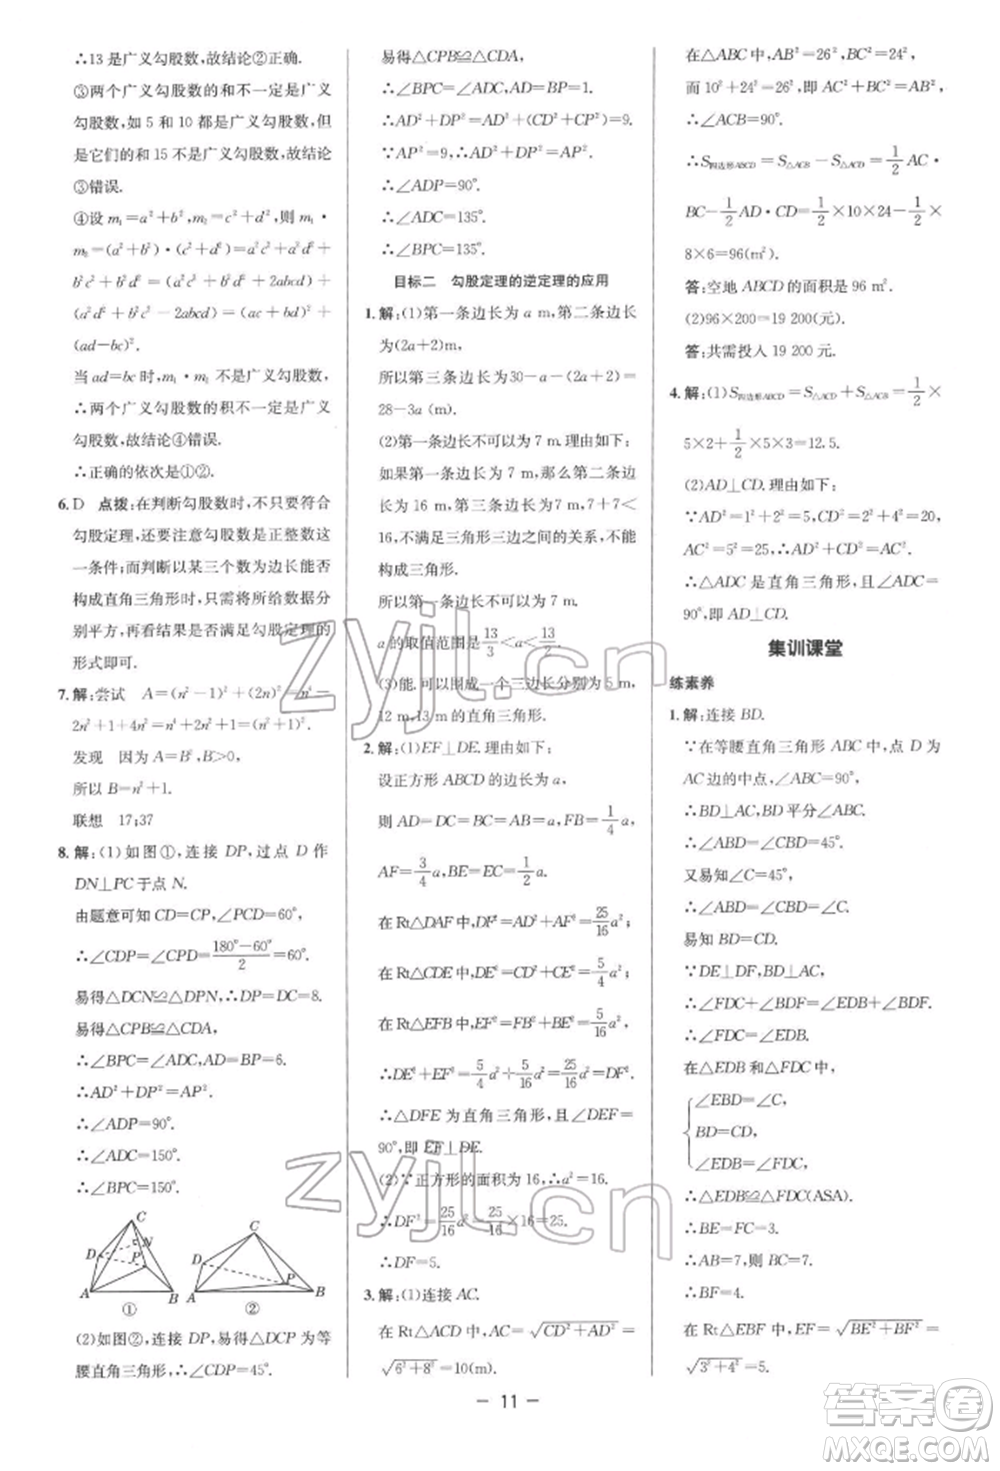 ∴13是广义勾股数,故结论②正确.
③两个广义勾股数的和不一定是广义
勾股数,如 5 和 10 都是广义勾股数,
但是它们的和 15 不是广义勾股数,故结论
③错误.
④设 m₁=a²+b²,m₂=c²+d²,则 m₁·
m₂=(a²+b²)·(c²+d²)=a²c²+a²d²+
b²c²+b²d²=(a²c²+b²d²+2abcd)+
(a²d²+b²c²-2abcd)=(ac+bd)²+
(ad-bc)².
当 ad=bc 时,m₁·m₂ 不是广义勾股数,
∴两个广义勾股数的积不一定是广义
勾股数,故结论④错误.
∴正确的依次是①②.
6. D 点拨:在判断勾股数时,不只要符合
勾股定理,还要注意勾股数是正整数这
一条件;而判断以某三个数为边长能否
构成直角三角形时,只需将所给数据分
别平方,再看结果是否满足勾股定理的
形式即可.
7. 解:尝试 A=(n²-1)²+(2n)²=n⁴-
2n²+1+4n²=n⁴+2n²+1=(n²+1)².
发现 因为 A=B²,B>0,
所以 B=n²+1.
联想 17;37
8. 解:(1)如图①,连接 DP,过点 D 作
DN⊥PC于点 N.
由题意可知 CD=CP,∠PCD=60°,
∴∠CDP=∠CPD=(180°-60°)/2=60°.
易得△DCN≌△DPN,∴DP=DC=8.
易得△CPB≌△CDA,
∴∠BPC=∠ADC,AD=BP=6.
∴AD²+DP²=AP².
∴∠ADP=90°.
∴∠ADC=150°.
∴∠BPC=150°.
C
D
N
P
A
B
①
C
D
P
A
B
②
(2)如图②,连接 DP,易得△DCP 为等
腰直角三角形,∴∠CDP=45°.
易得△CPB≌△CDA,
∴∠BPC=∠ADC,AD=BP=1.
∴AD²+DP²=1²+(2√2)²=9.
∵AP²=9,∴AD²+DP²=AP².
∴∠ADP=90°.
∴∠ADC=135°.
∴∠BPC=135°.
目标二 勾股定理的逆定理的应用
1. 解:(1)第一条边长为 a m,第二条边长
为(2a+2)m,
所以第三条边长为30-a-(2a+2)=
28-3a (m).
(2)第一条边长不可以为 7 m.理由如下:
如果第一条边长为 7 m,那么第二条边
长为 16 m,第三条边长为 7 m,7+7<
16,不满足三角形三边之间的关系,不能
构成三角形.
所以第一条边长不可以为 7 m.
a 的取值范围是13/3<a<13/2.
(3)能.可以围成一个三边长是 5 m,
12 m,13 m的直角三角形.
2. 解:(1)EF⊥DE.理由如下:
设正方形 ABCD 的边长为 a,
则 AD=DC=BC=AB=a,FB=1/4 a,
AF=3/4 a,BE=EC=1/2 a.
在 Rt△DAF 中,DF²=AD²+AF²=25/16 a²;
在 Rt△CDE 中,DE²=CD²+CE²=5/4 a²;
在 Rt△EFB 中,EF²=FB²+BE²=5/16 a².
∴DE²+EF²=5/4 a²+5/16 a²=25/16 a²=DF².
∴△DFE 为直角三角形,且∠DEF=
90°,即 EF⊥DE.
(2)∵正方形的面积为 16,∴a²=16.
∴DF²=25/16 a²=25/16×16=25.
∴DF=5.
3. 解:(1)连接 AC.
在 Rt△ACD 中,AC=√(CD²+AD²)=
√(6²+8²)=10(m).
在△ABC 中,AB²=26²,BC²=24²,
而 10²+24²=26²,即 AC²+BC²=AB²,
∴∠ACB=90°.
∴S四边形ABCD=S△ACB-S△ACD=1/2 AC·
BC-1/2 AD·CD=1/2×10×24-1/2×
8×6=96(m²).
答:空地 ABCD 的面积为 96 m².
(2)96×200=19 200(元).
答:共需投入 19 200 元.
4. 解:(1)S四边形ABCD=S△ACD+S△ACB=1/2×
5×2+1/2×5×3=12.5.
(2)AD⊥CD.理由如下:
∵AD²=1²+2²=5,CD²=2²+4²=20,
AC²=5²=25,∴AD²+CD²=AC².
∴△ADC 是直角三角形,且∠ADC=
90°,即 AD⊥CD.
集训课堂
练素养
1. 解:连接 BD.
∵在等腰直角三角形 ABC 中,点 D 为
AC 边的中点,∠ABC=90°,
∴BD⊥AC,BD 平分∠ABC.
∴∠ABD=∠CBD=45°.
又易知∠C=45°,
∴∠ABD=∠CBD=∠C.
易知 BD=CD.
∵DE⊥DF,BD⊥AC,
∴∠FDC+∠BDF=∠EDB+∠BDF.
∴∠FDC=∠EDB.
在△EDB 和△FDC 中,
∠EBD=∠C,
BD=CD,
∠EDB=∠FDC,
∴△EDB≌△FDC(ASA).
∴BE=FC=3.
∴AB=7,则 BC=7.
∴BF=4.
在 Rt△EBF 中,EF=√(BE²+BF²)=
√(3²+4²)=5.
- 11 -
zyjl.cn
zyjl.cn
答案圈
MXQE.COM